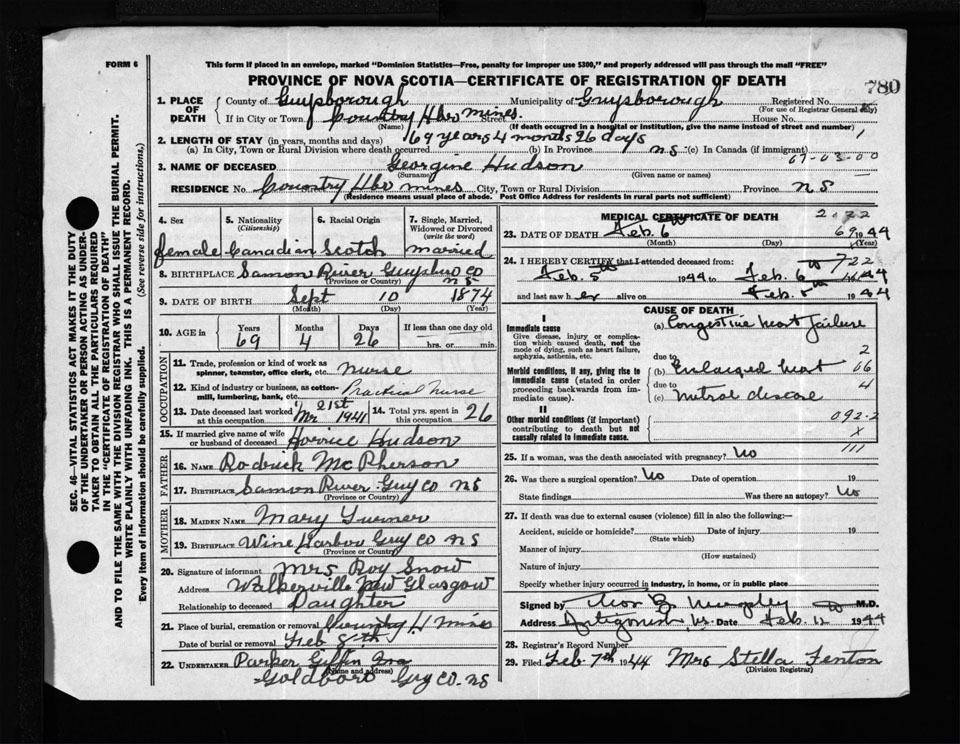 FORM 6
This form if placed in an envelope, marked "Dominion Statistics—Free, penalty for improper use $300," and properly addressed will pass through the mail "FREE"
PROVINCE OF NOVA SCOTIA—CERTIFICATE OF REGISTRATION OF DEATH
780
1. PLACE OF DEATH County of Guysborough Municipality of Guysborough Registered No.
(For use of Registrar General only)
If in City or Town Country Hbr mines. Street House No.
(Name) (If death occurred in a hospital or institution, give the name instead of street and number)
2. LENGTH OF STAY (in years, months and days) 69 years 4 months 26 days
(a) In City, Town or Rural Division where death occurred (b) In Province NS (c) In Canada (if immigrant)
67-03-00
3. NAME OF DECEASED Georgine Hudson
(Surname) (Given name or names)
RESIDENCE No. Country Hbr mines City, Town or Rural Division Province NS
(Residence means usual place of abode. Post Office Address for residents in rural parts not sufficient)
4. Sex 5. Nationality (Citizenship) 6. Racial Origin 7. Single, Married, Widowed or Divorced (write the word)
female Canadian Scotch married
8. BIRTHPLACE Samon River Guysbro CO NS
(Province or Country)
9. DATE OF BIRTH Sept 10 1874
(Month) (Day) (Year)
10. AGE in Years Months Days If less than one day old
69 4 26 hrs. or min.
OCCUPATION
11. Trade, profession or kind of work as spinner, teamster, office clerk, etc. nurse
12. Kind of industry or business, as cotton-mill, lumbering, bank, etc. Practical nurse
13. Date deceased last worked at this occupation 21st 1941
14. Total yrs. spent in this occupation 26
15. If married give name of wife or husband of deceased Horrice Hudson
FATHER
16. NAME Rodrick McPherson
17. BIRTHPLACE Samon River Guy CO NS
(Province or Country)
MOTHER
18. MAIDEN NAME Mary Turner
19. BIRTHPLACE Wine Harbor Guy CO NS
(Province or Country)
20. Signature of informant Mrs Roy Snow
Address Walkerville New Glasgow
Relationship to deceased Daughter
21. Place of burial, cremation or removal Country H mines
Date of burial or removal Feb 8th
22. UNDERTAKER Parker Giffin
(Name and address)
Goldboro Guy CO. NS
MEDICAL CERTIFICATE OF DEATH
23. DATE OF DEATH Feb. 6th 1944
(Month) (Day) (Year)
24. I HEREBY CERTIFY that I attended deceased from:
Feb. 5th 1944 to Feb. 6th 1944
and last saw her alive on Feb. 5th 1944
CAUSE OF DEATH
I
Immediate cause (a) Congestive heart failure
Give disease, injury or complication which caused death, not the mode of dying, such as heart failure, asphyxia, asthenia, etc.
due to
Morbid conditions, if any, giving rise to immediate cause (stated in order proceeding backwards from immediate cause). (b) Enlarged heart
due to
(c) mitral disease
II
Other morbid conditions (if important) contributing to death but not causally related to immediate cause.
092-2
X
111
25. If a woman, was the death associated with pregnancy? No
26. Was there a surgical operation? No Date of operation 19
State findings Was there an autopsy? No
27. If death was due to external causes (violence) fill in also the following:—
Accident, suicide or homicide? Date of injury 19
(State which)
Manner of injury
(How sustained)
Nature of injury
Specify whether injury occurred in industry, in home, or in public place
Signed by M.D.
Address Antigonish Date Feb. 12 1944
28. Registrar's Record Number
29. Filed Feb 7th 1944 Mrs Stella Fenton
(Division Registrar)
SEC. 46—VITAL STATISTICS ACT MAKES IT THE DUTY
OF THE UNDERTAKER OR PERSON ACTING AS UNDER-
TAKER TO OBTAIN ALL THE PARTICULARS REQUIRED
IN THE "CERTIFICATE OF REGISTRATION OF DEATH"
AND TO FILE THE SAME WITH THE DIVISION REGISTRAR WHO SHALL ISSUE THE BURIAL PERMIT.
WRITE PLAINLY WITH UNFADING INK. THIS IS A PERMANENT RECORD.
Every item of information should be carefully supplied. (See reverse side for instructions.)